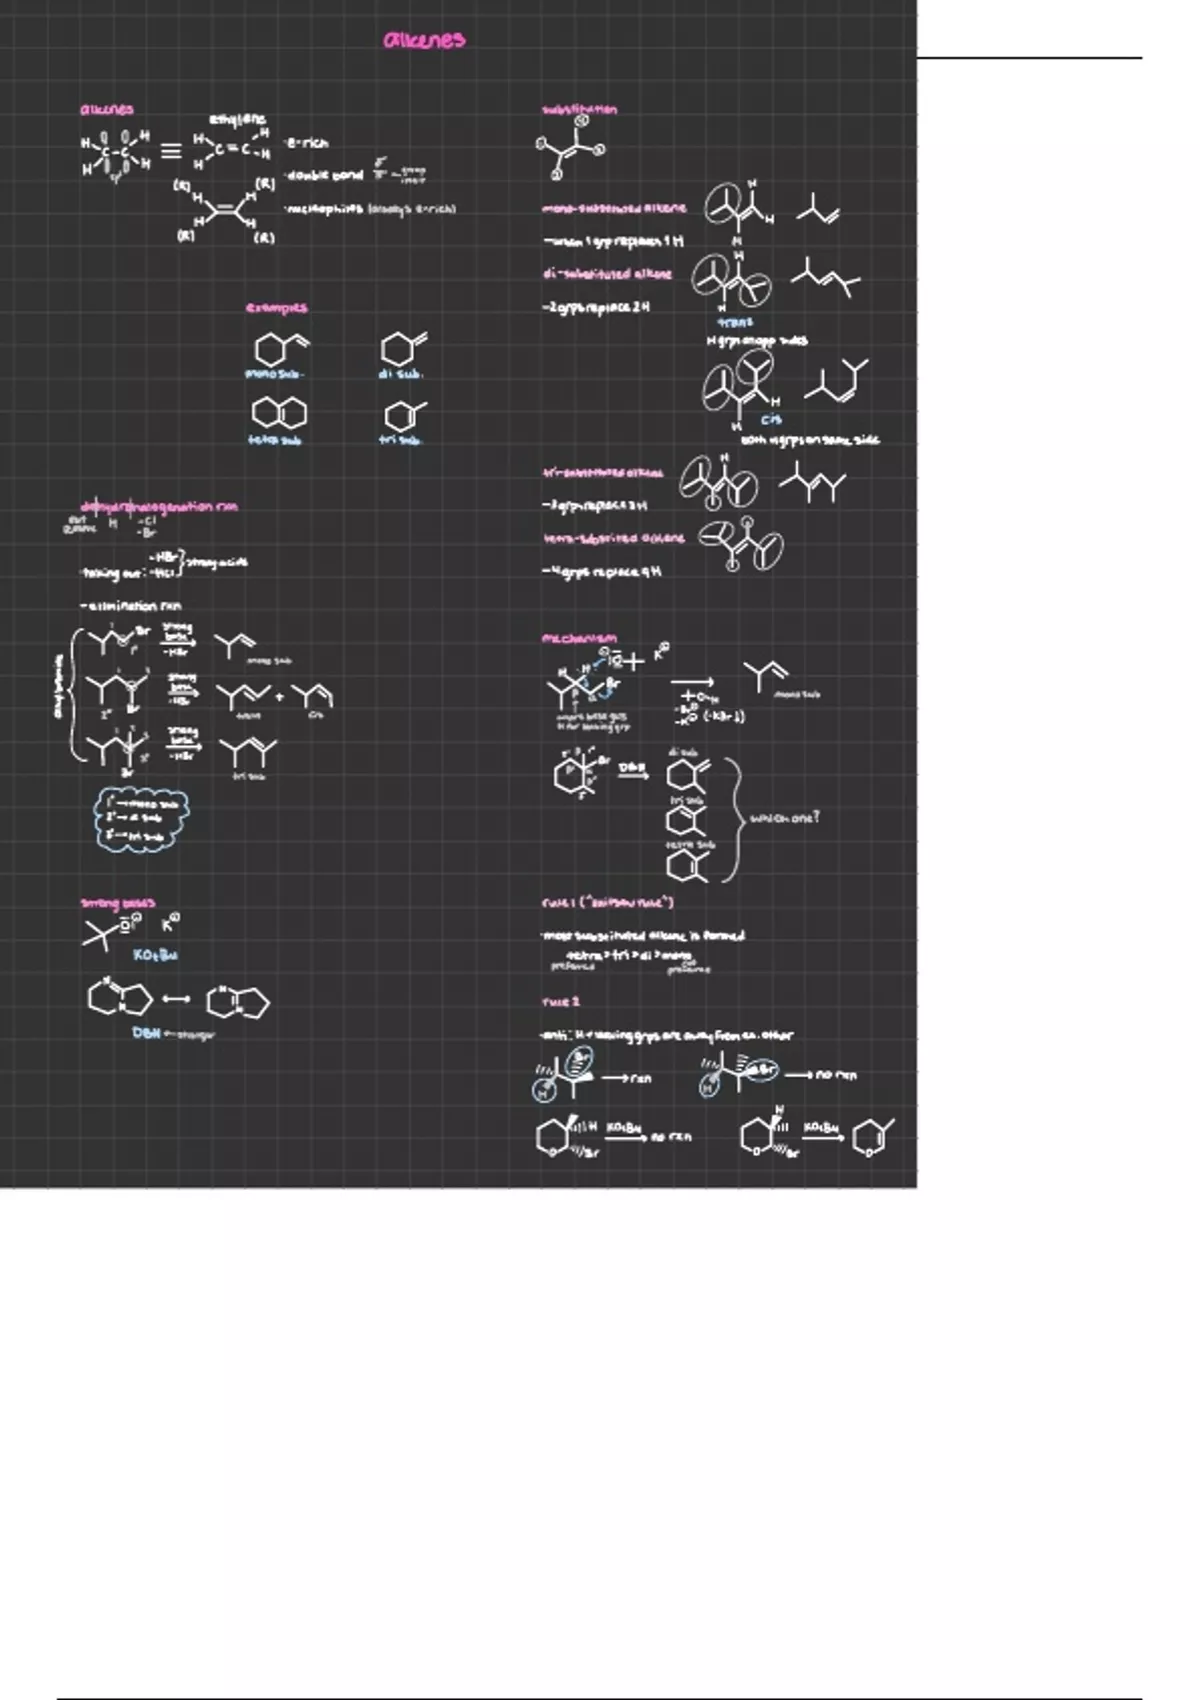 alkenes
alkenes
ethylene
e-rich
double bond
nucleophiles (always e-rich)
examples
mono sub.
di sub.
tetra sub
tri sub.
dehydrohalogenation rxn
H
-Cl
-Br
taking out: -HBr
-HCl
strong acids
-elimination rxn
Br
strong base
-HBr
mono sub
strong base
-HBr
Br
2°
trans
+
cis
strong base
-HBr
Br
3°
tri sub
1° → mono sub
2° → di sub
3° → tri sub
strong bases
K⊕
KOtBu
DBN ← stronger
substitution
mono-substituted alkene
-when 1 grp replaces 1 H
di-substituted alkene
-2 grps replace 2 H
trans
H grp on opp sides
cis
both H grps on same side
tri-substituted alkene
-3 grp replace 3 H
-4 grps replace 4 H
mechanism
K⊕
Br
mono sub
Br
DBN
di sub
tri sub
tetra sub
which one?
most substituted alkene is formed
tetra > tri > di > mono
preferred
rule 2
-anti: H + leaving grps are away from ea. other
Br
H
→ rxn
Br
H
→ no rxn
H
O
Br
KOtBu
no rxn
H
O
Br
KOtBu
O